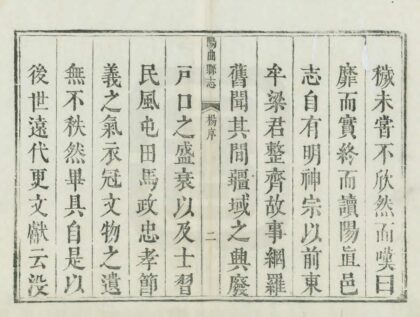 穢未嘗不欣然而嘆曰
靡而實終而讀陽直邑
志自有明神宗以前東
牟梁君整齊故事網羅
舊聞其間疆域之興廢
陽曲縣志
楊序
二
戸口之盛衰以及士習
民風屯田馬政忠孝節
義之氣衣冠文物之遺
無不秩然畢具自是以
後世遠代更文獻云没